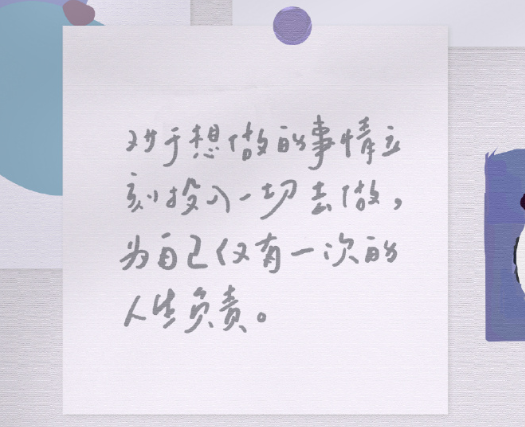 对于想做的事情立
刻投入一切去做，
为自己仅有一次的
人生负责。